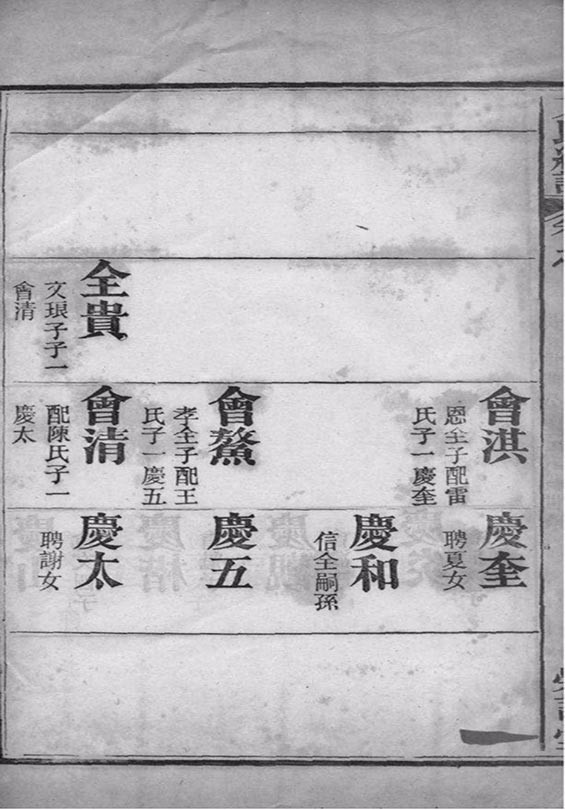 全貴
文琅子子一
會清
會淇
恩全子配雷
氏子一慶奎
會鰲
孝全子配王
氏子一慶五
會清
配陳氏子一
慶太
慶奎
聘夏女
慶和
信全嗣孫
慶五
慶太
聘謝女